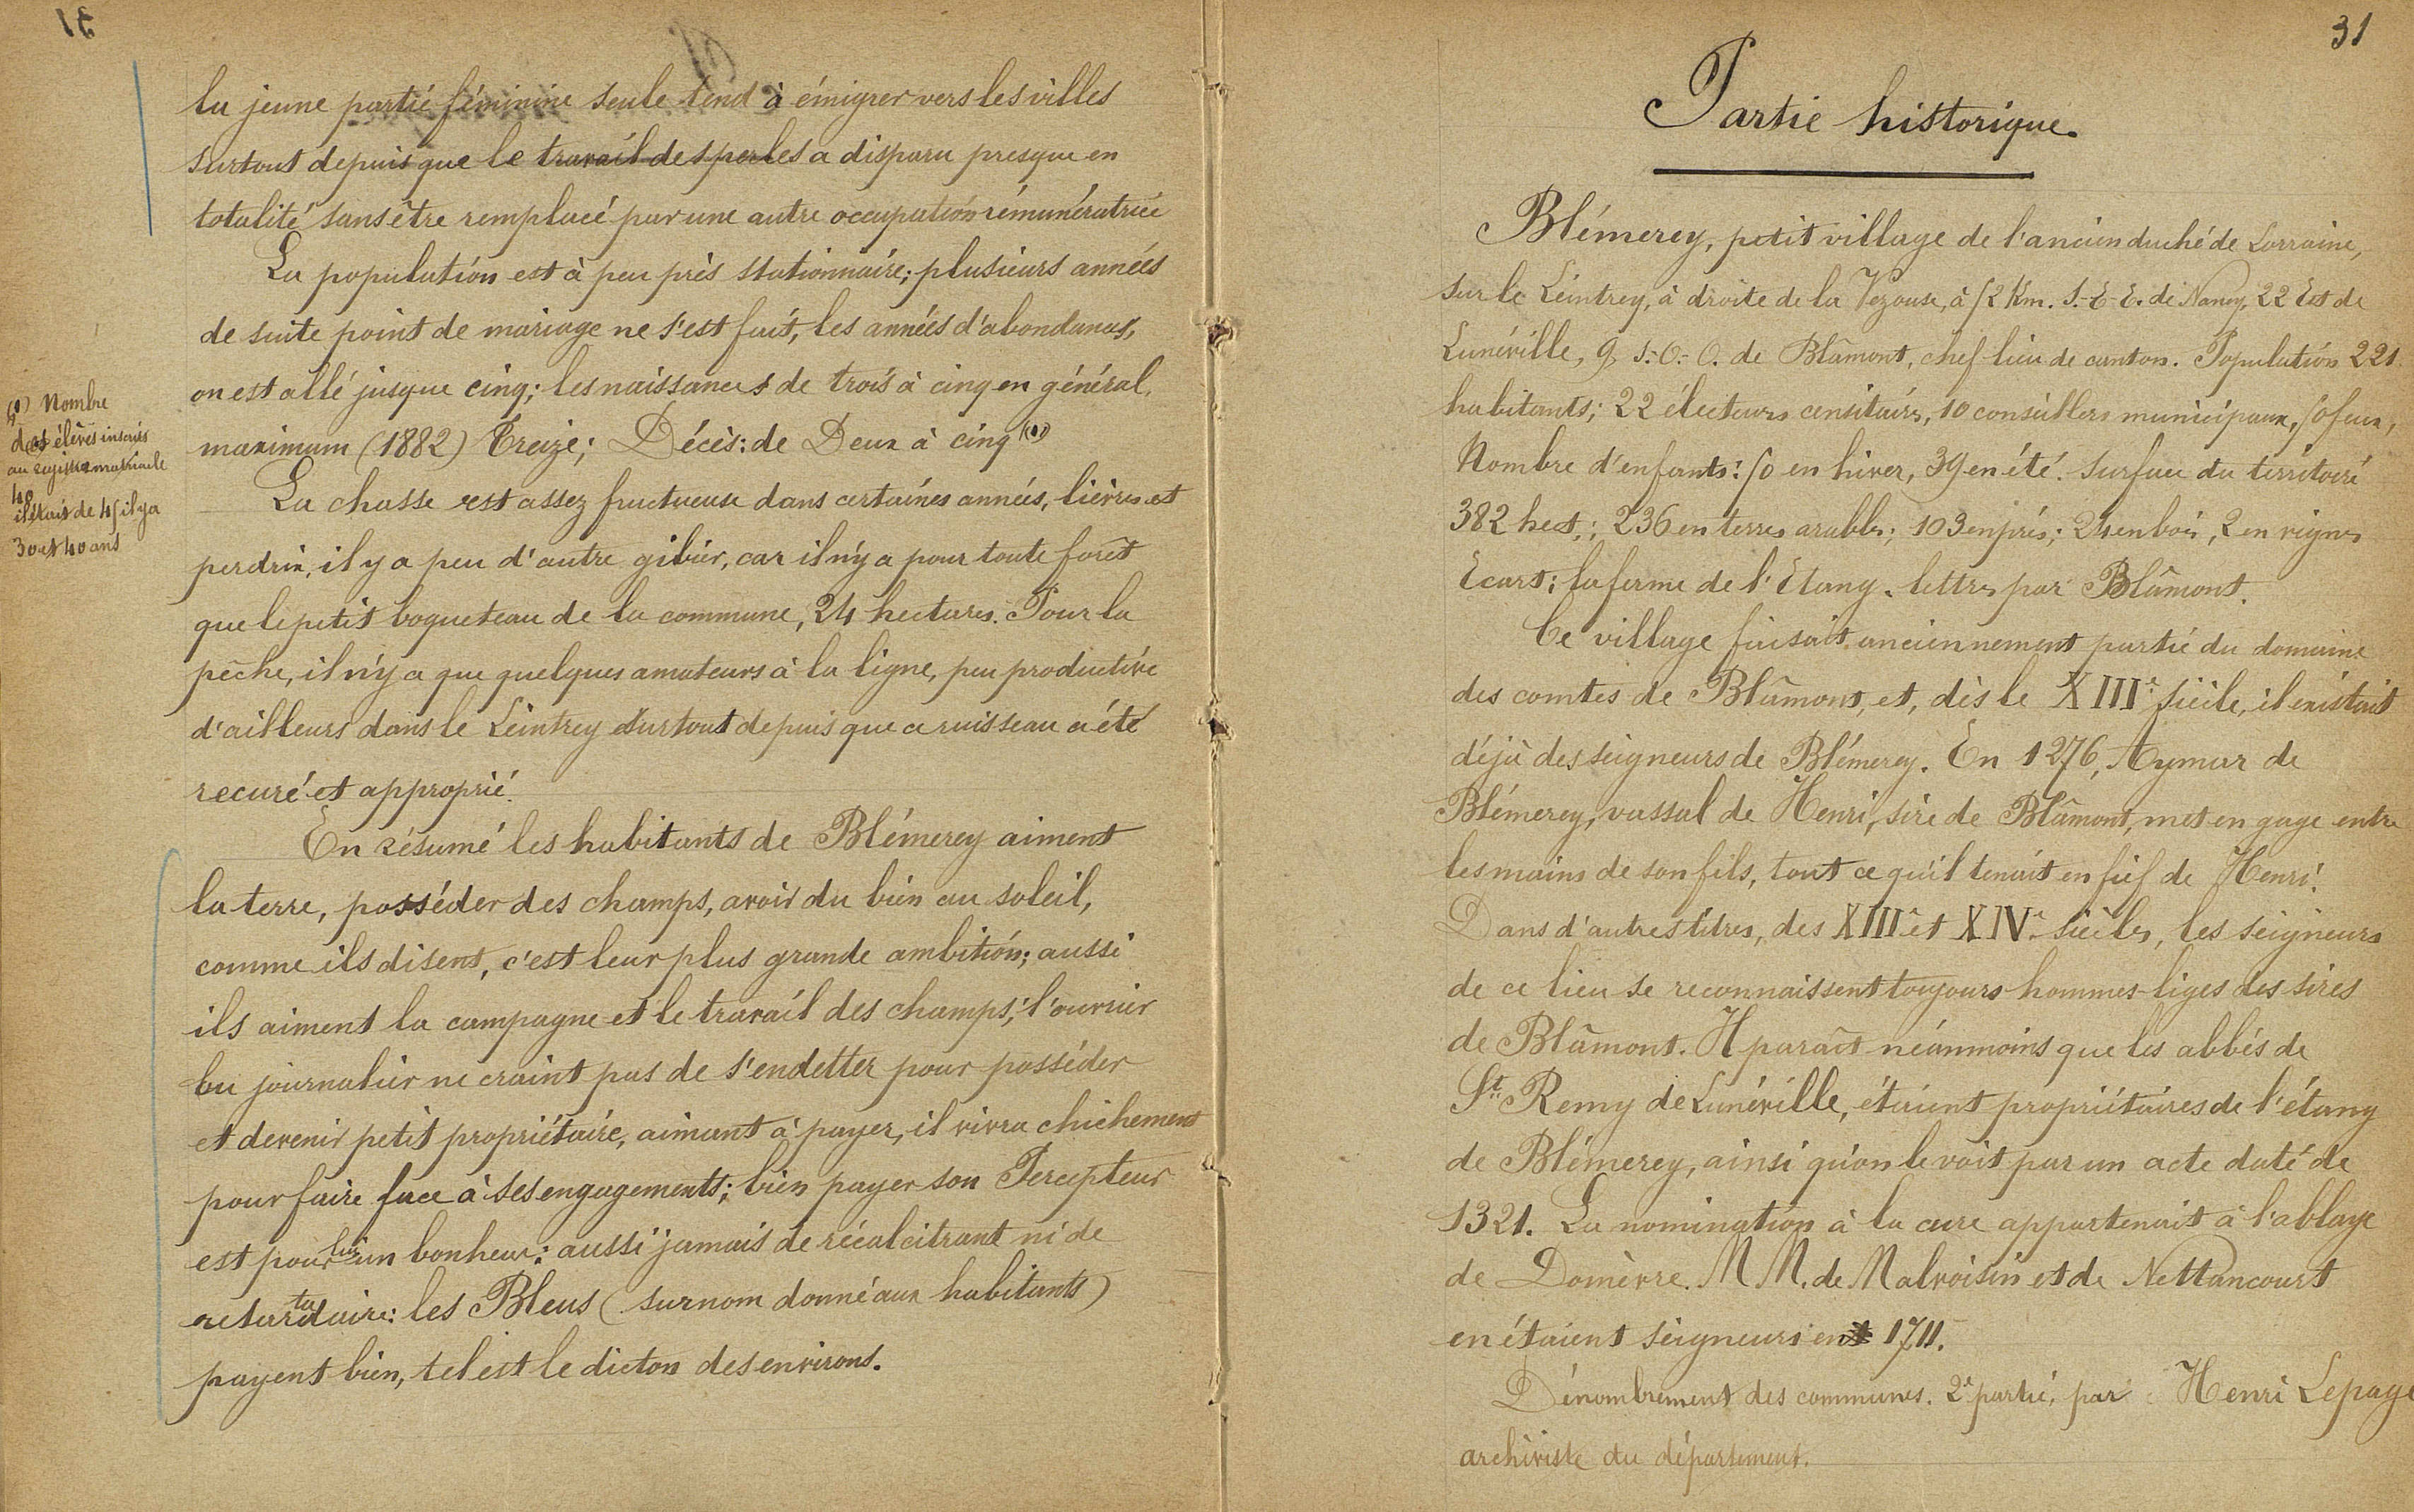 la jeune partie féminine seule tend à émigrer vers les villes
surtout depuis que le travail des perles a disparu presque en
totalité sans être remplacé par une autre occupation rémunératrice
La population est à peu près stationnaire; plusieurs années
de suite point de mariage ne s'est fait, les années d'abondances,
on est allé jusque cinq; les naissances de trois à cinq en général.
maximum (1882) Treize; Décès: de Deux à cinq (1)
La chasse est assez fructueuse dans certaines années, lièvres et
perdrix, il y a peu d'autre gibier, car il n'y a pour toute forêt
que le petit boqueteau de la commune, 24 hectares. Pour la
pêche, il n'y a que quelques amateurs à la ligne, peu productive
d'ailleurs dans le Leintrey surtout depuis que ce ruisseau a été
recuré et approprié.
En résumé les habitants de Blémerey aiment
la terre, posséder des champs, avoir du bien au soleil,
comme ils disent, c'est leur plus grande ambition; aussi
ils aiment la campagne et le travail des champs; l'ouvrier
ou journalier ne craint pas de s'endetter pour posséder
et devenir petit propriétaire, aimant à payer, il vivra chichement
pour faire face à ses engagements; bien payer son Percepteur
est pour lui un bonheur: aussi jamais de récalcitrant ni de
retardataire: les Bleus (surnom donné aux habitants)
payent bien, tel est le dicton des environs.
(1) Nombre
des élèves inscrits
au registre matricule
40
il était de 45 il y a
30 et 40 ans
31
Partie historique.
Blémerey, petit village de l'ancien duché de Lorraine,
sur le Leintrey, à droite de la Vezouse, à 52 Km. S.-E-E. de Nancy, 22 Est de
Lunéville, 9 S.-O.-O. de Blâmont, chef lieu de canton. Population 221
habitants; 22 électeurs censitaires, 10 conseillers municipaux, 50 feux,
Nombre d'enfants: 50 en hiver, 39 en été. Surface du territoire
382 hect.; 236 en terres arables; 103 en prés; 24 en bois, 2 en vignes
Ecart: la ferme de l'Etang. lettres par Blâmont.
Ce village faisait anciennement partie du domaine
des comtes de Blâmont, et, dès le XIIIe siècle, il existait
déjà des seigneurs de Blémerey. En 1276, Aymar de
Blémerey, vassal de Henri, sire de Blâmont, met en gage entre
les mains de son fils, tout ce qu'il tenait en fief de Henri.
Dans d'autres titres, des XIIIe et XIVe siècles, les seigneurs
de ce lieu se reconnaissent toujours hommes-liges des sires
de Blâmont. Il paraît néanmoins que les abbés de
St Remy de Lunéville, étaient propriétaires de l'étang
de Blémerey, ainsi qu'on le voit par un acte daté de
1321. La nomination à la cure appartenait à l'abbaye
de Domèvre. M M. de Malvoisin et de Nettancourt
en étaient seigneurs en 1711.
Dénombrement des communes. 2e partie, par Henri Lepage
archiviste du département.